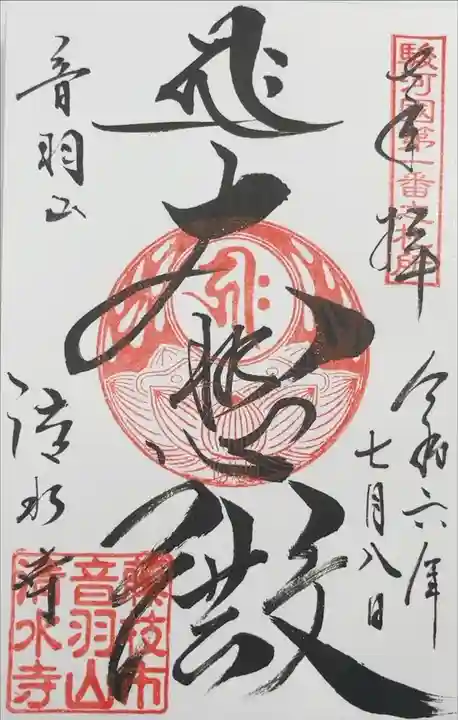 駿河國第一番札所
奉拝
令和六年
七月八日
大悲殿
音羽山
清水寺
藤枝市
音羽山
清水寺